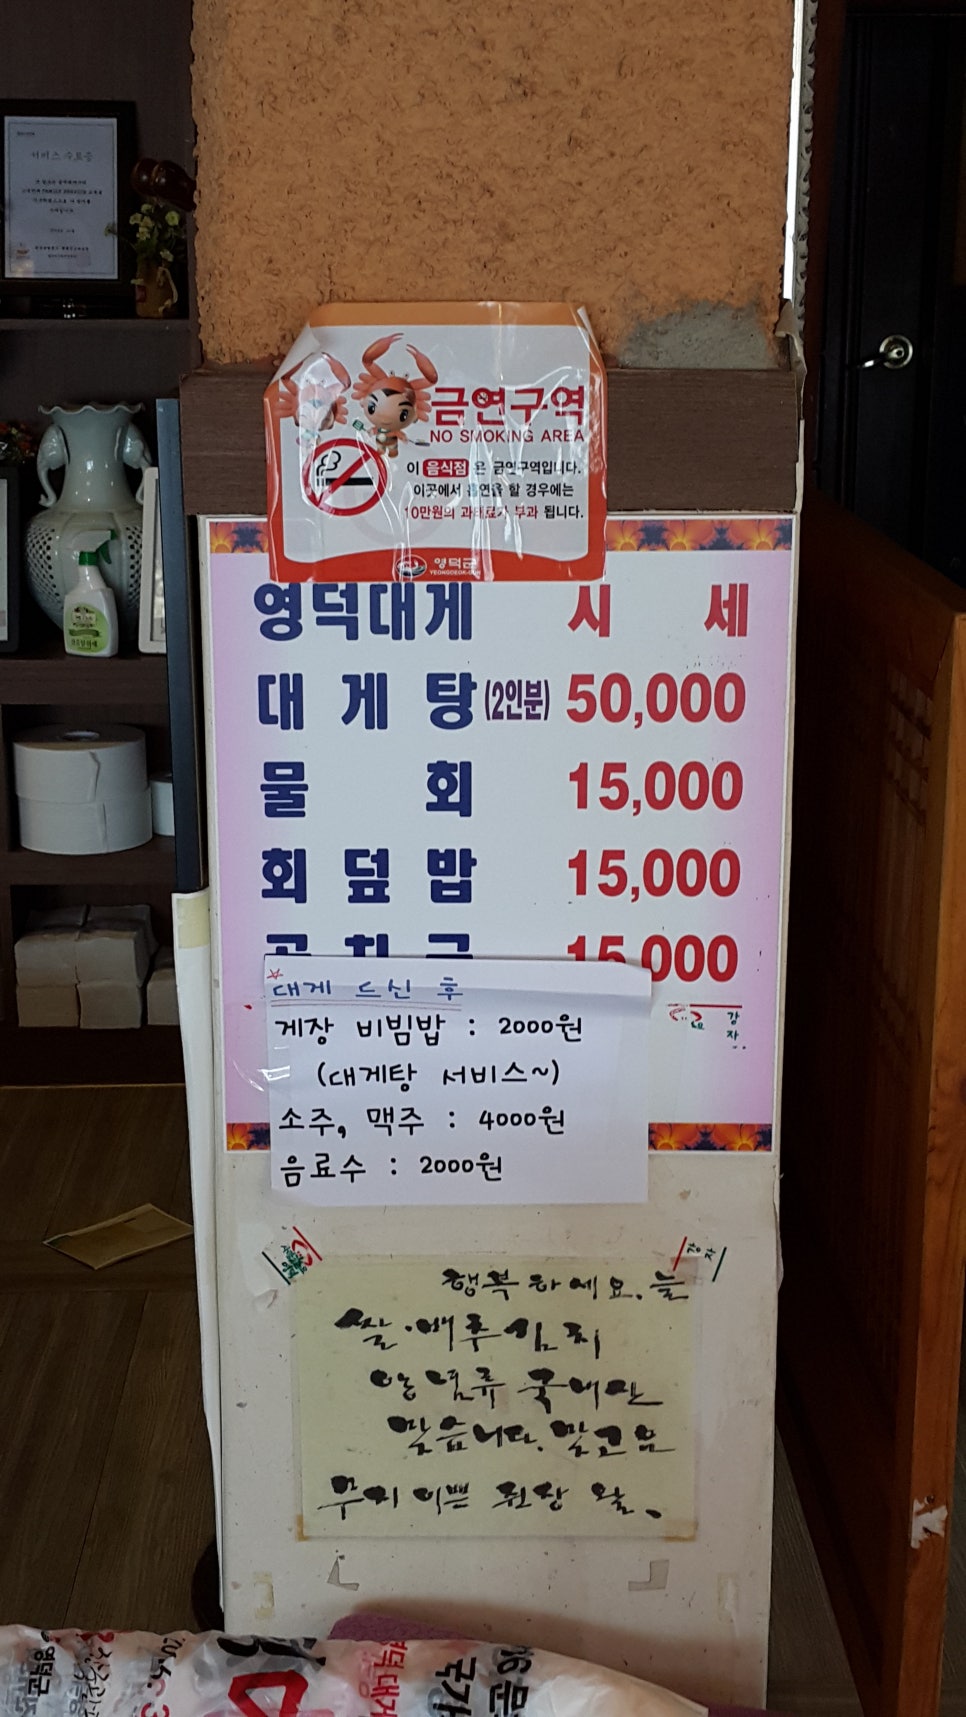 서비스 수료증
금연구역
NO SMOKING AREA
이 음식점 은 금연구역입니다.
이곳에서 흡연을 할 경우에는
10만원의 과태료가 부과 됩니다.
영덕군
YEONGDEOK-GUN
영덕대게 시 세
대 게 탕 (2인분) 50,000
물 회 15,000
회 덮 밥 15,000
15,000
☆
대게 드신 후
게장 비빔밥 : 2000원
(대게탕 서비스~)
소주, 맥주 : 4000원
음료수 : 2000원
강
자
강자
행복하세요. 늘
쌀·배추김치
양념류 국내산
맞습니다. 맞고요
무지 이쁜 쥔장 왈.
영덕군
영덕대게